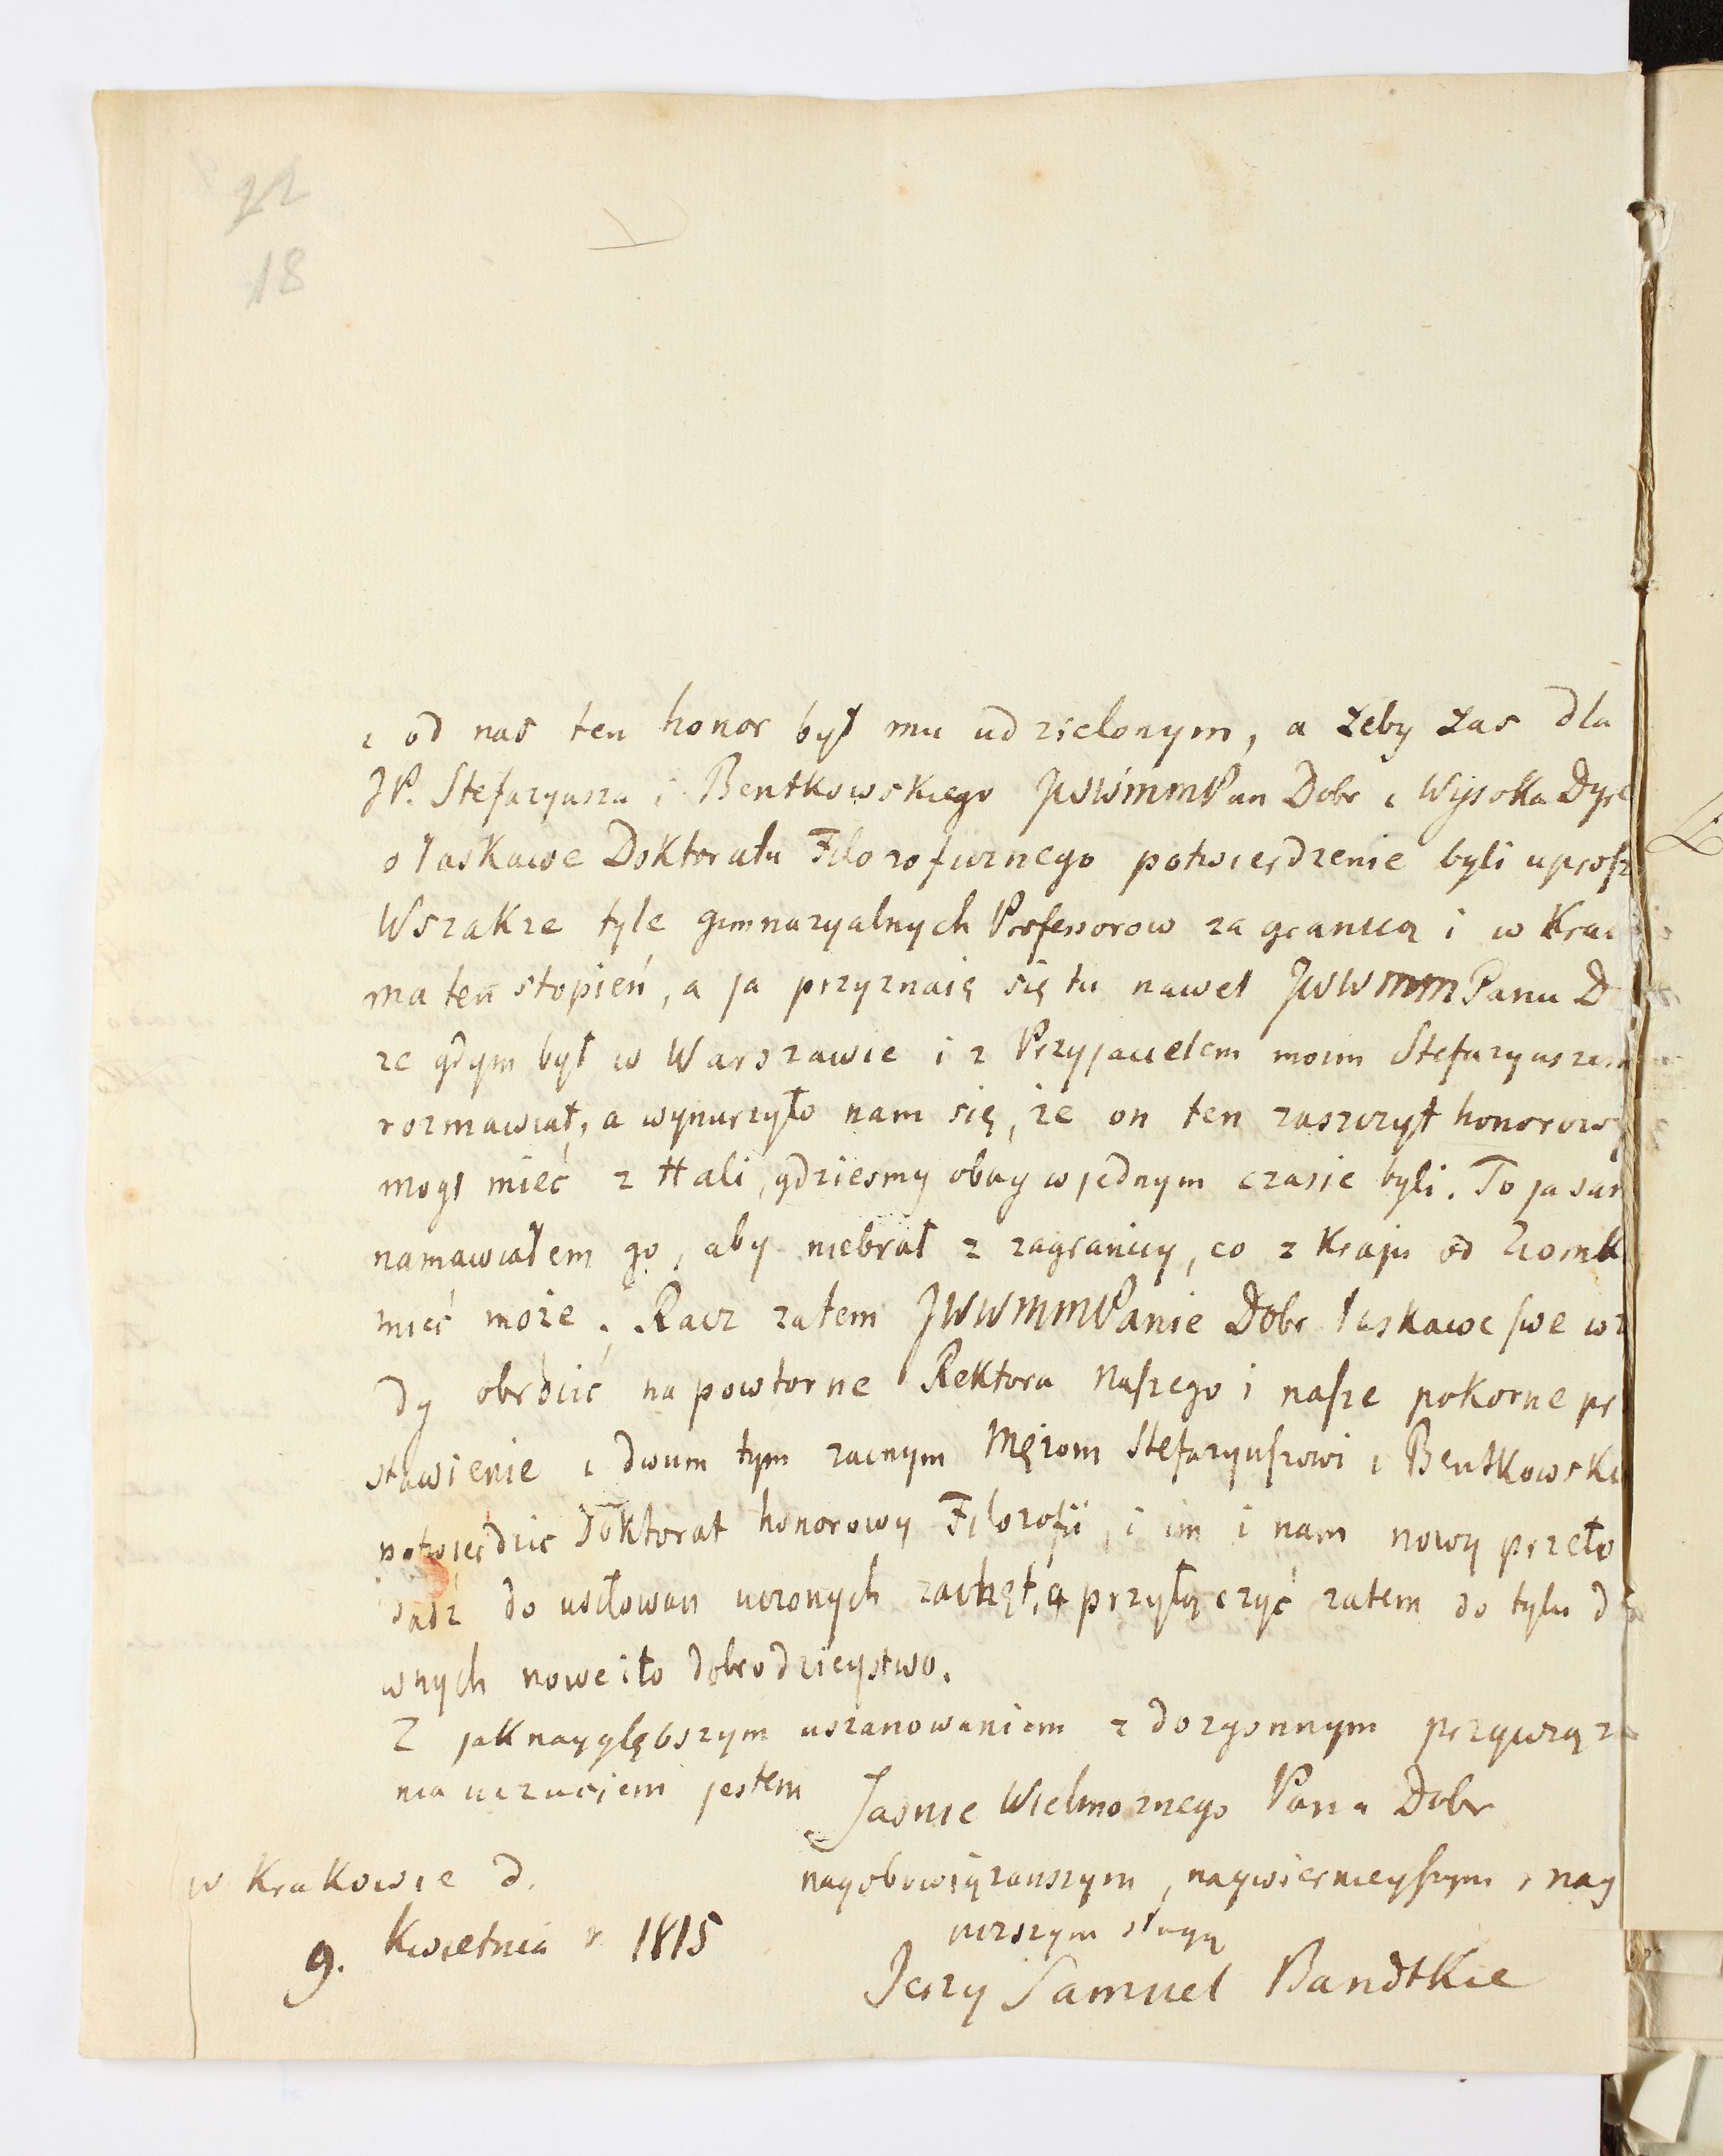 22
18
i od nas ten honor był mu udzielonym, a żeby zas dla
JP. Stefazyusza i Bentkowskiego JWWmmPan Dobr i Wysoka Dyre
o łaskawe Doktoratu Filozoficznego potwierdzenie byli uprosz
Wszakze tyle gimnazyalnych Professorow za granicą i w Kra
ma ten stopień, a ja przyznaię się tu nawet JWWmmPanu D
ze gdym był w Warszawie i z Przyjacielem moim Stefazyuszem
rozmawiał, a wynurzyło nam się, że on ten zaszczyt honorowy
mogł mieć z Hali, gdziesmy obay w jednym czasie byli. To ja sam
namawiałem go, aby niebrał z zagranicy, co z kraju od Ziomk
mieć może. Racz zatem JWWmmPanie Dobr łaskawe swe wz
dy obrócić na powtorne Rektora Naszego i nasze pokorne pr
stawienie i dwum tym zacnym Mężom Stefazyuszowi i Bentkowski
potwierdzić Doktorat honorowy Filozofii, i im i nam nowy przeło
dadź do usiłowan uczonych zachętę, a przyłączyć zatem do tylu da
wnych nowe i to dobrodzieystwo.
Z jak naygłębszym uszanowaniem z dozgonnym przywiąza
nia uczuciem jestem Jasnie Wielmoznego Pana Dobr
nayobowiązanszym, naywiernieyszym i nay
nizszym sługą
w Krakowie d.
9. Kwietnia r 1815
Jerzy Samuel Bandtkie